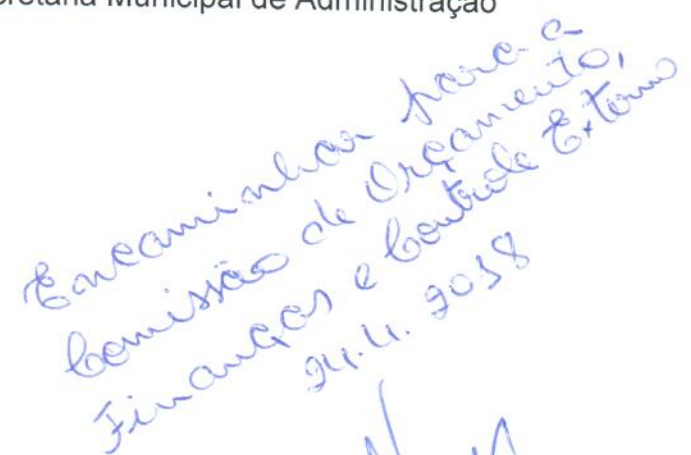 cretaria Municipal de Administração
Encaminhar para a
Comissão de Orçamento,
Finanças e Controle Externo